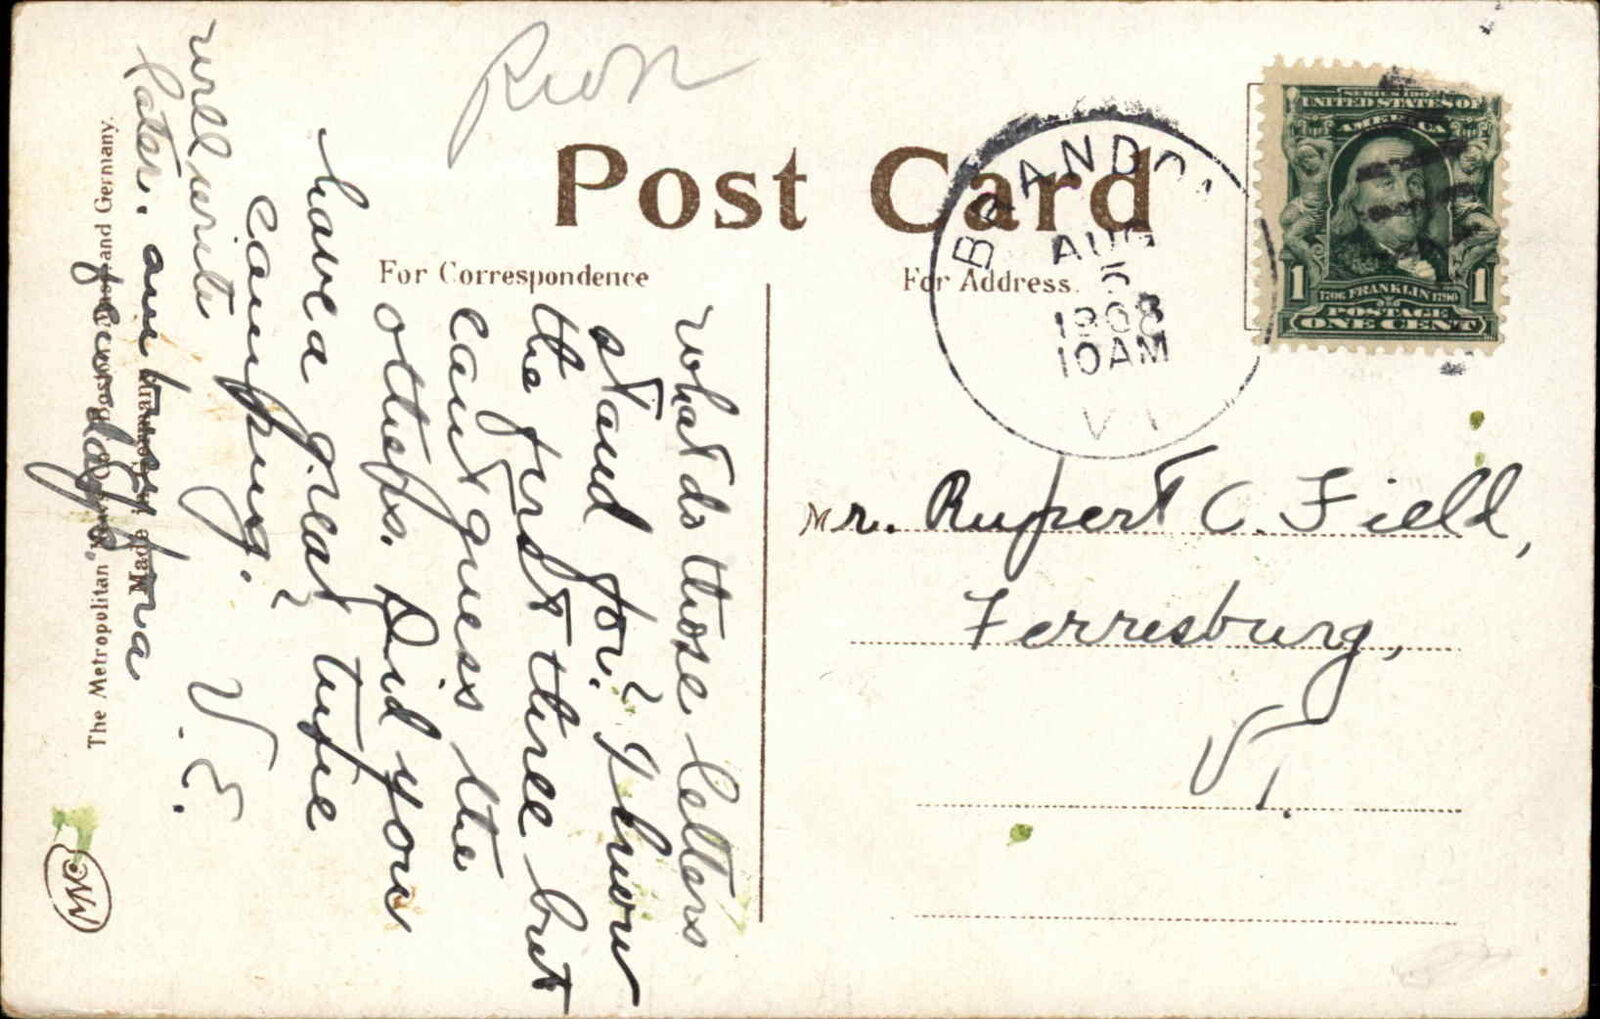 Post Card
For Correspondence
For Address.
BRANDON
AUG
5
1908
10AM
VT
SERIES 1902
UNITED STATES OF
AMERICA
1
1
1706 FRANKLIN 1790
POSTAGE
ONE CENT
Mr. Rupert C. Field,
Ferresburg,
Vt.
What do those letters
stand for? I know
the first three but
can't guess the
others. Did you
have a great time
camping?
will write
later. am busy for a
few days
V. E.
The Metropolitan
Made
and Germany.